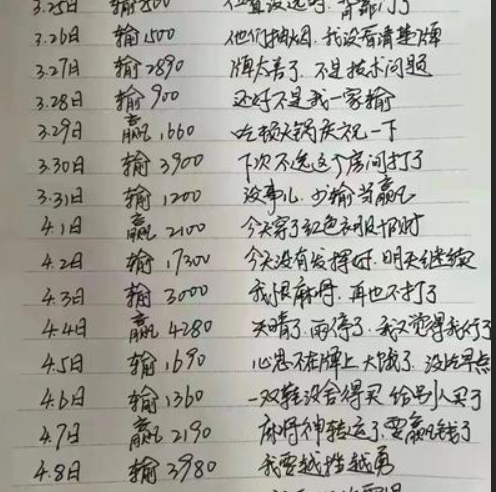 3.25日 输500 位置没选好，背靠门了
3.26日 输1500 他们抽烟，我没看清楚牌
3.27日 输2890 牌太差了，不是技术问题
3.28日 输900 还好不是我一家输
3.29日 赢1660 吃顿火锅庆祝一下
3.30日 输3900 下次不选这个房间打了
3.31日 输1200 没事儿，少输当赢
4.1日 赢2100 今天穿了红色衣服招财
4.2日 输17300 今天没有发挥好，明天继续
4.3日 输3000 我恨麻将，再也不打了
4.4日 赢4280 天晴了，雨停了，我又觉得我行了
4.5日 输1690 心思不在牌上，大饿了，没吃早点
4.6日 输1360 一双鞋没舍得买，给别人买了
4.7日 赢2190 麻将神转运了，要赢钱了
4.8日 输3980 我要越挫越勇